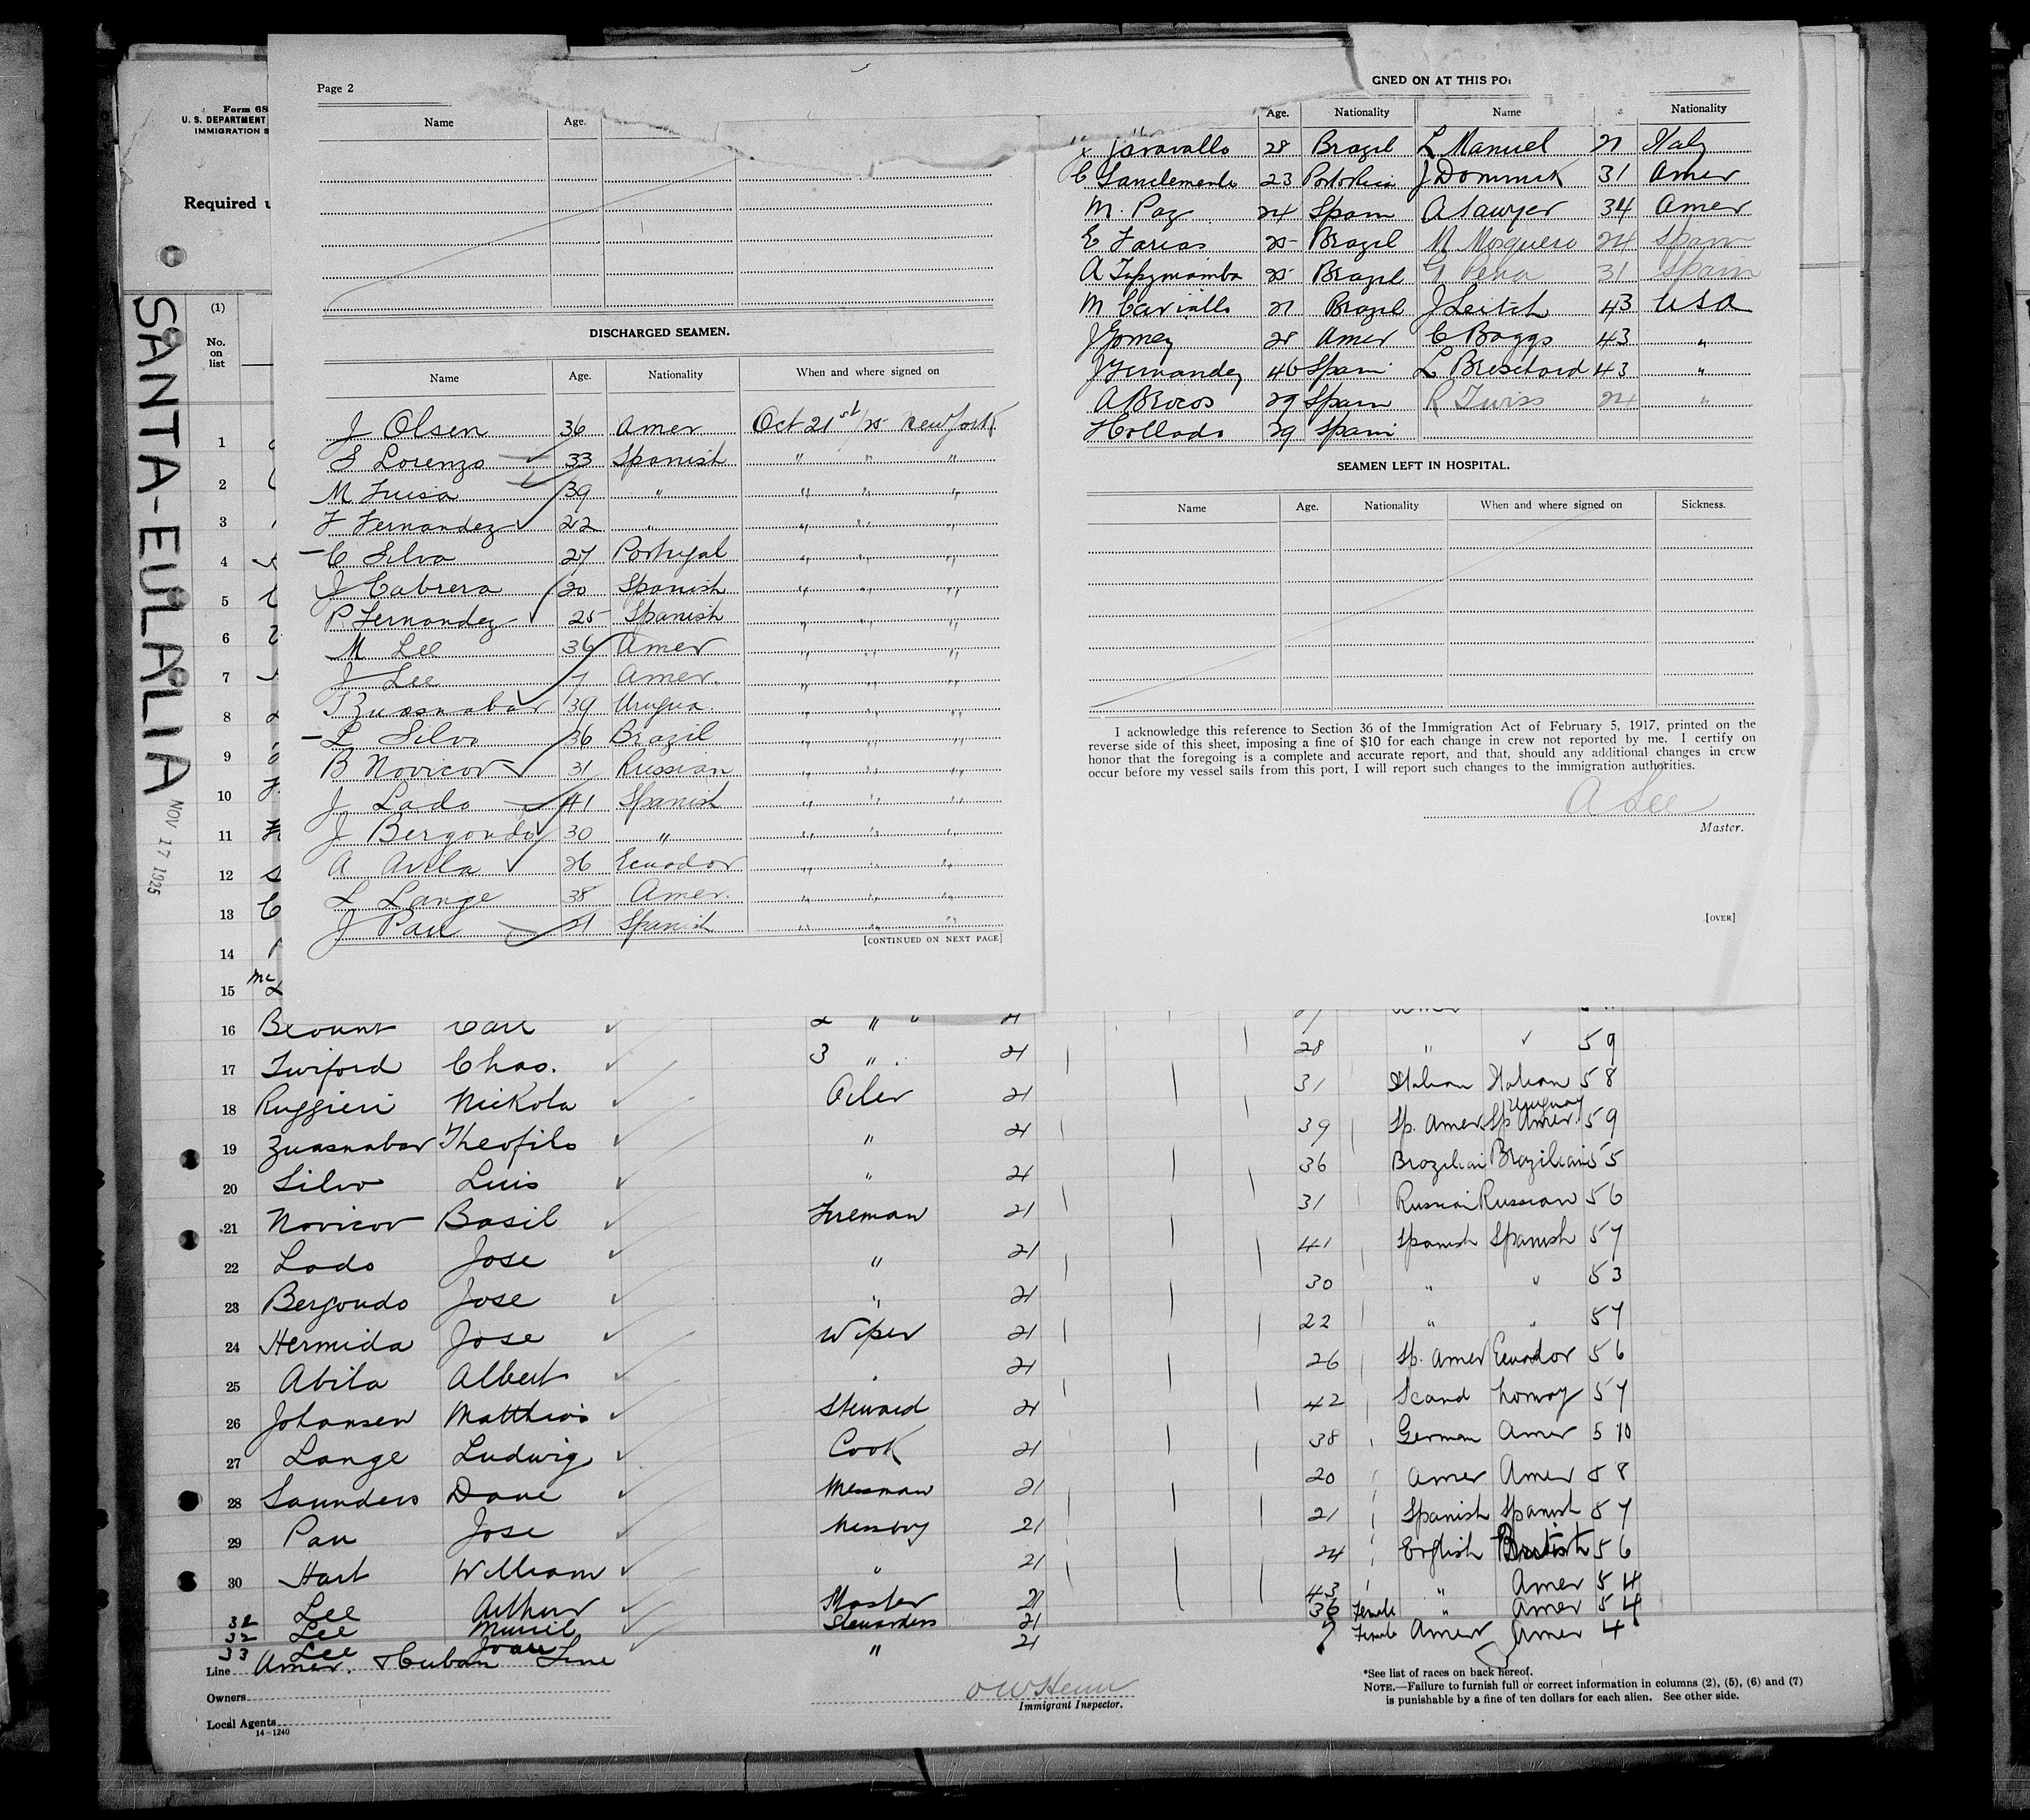 Form 68
U. S. DEPARTMENT
IMMIGRATION S
Required u
SANTA-EULALIA
NOV 17 1925
(1)
No. on list
1
2
3
4
5
6
7
8
9
10
11
12
13
14
15
Page 2
Name Age.
DISCHARGED SEAMEN.
Name Age. Nationality When and where signed on
J Olsen 36 Amer Oct 21st/25 New York
S Lorenzo 33 Spanish " " "
M Luisa 39 " " " "
F Fernandez 22 " " " "
C Silva 27 Portugal " " "
J Cabrera 20 Spanish " " "
P Fernandez 25 Spanish " " "
M Lee 36 Amer " " "
J Lee 7 Amer. " " "
T Zuasnabar 39 Urugua " " "
L Silva 36 Brazil " " "
B Novicov 31 Russian " " "
J Lado 41 Spanish " " "
J Bergondo 30 " " " "
A Avila 26 Ecuador " " "
L Lange 38 Amer. " " "
J Pau 21 Spanish " " "
[CONTINUED ON NEXT PAGE]
GNED ON AT THIS PO
Age. Nationality Name Nationality
28 Brazil L Manuel 21 Italy
23 Porto Rico J Dominick 31 Amer
M. Paz 24 Spain A Sawyer 34 Amer
E Farias 25 Brazil M Mosquero 24 Spain
A 25 Brazil G Pena 31 Spain
M Carvallo 21 Brazil J Leitch 43 USA
J Gomez 28 Amer C Baggs 43 "
J Fernandez 46 Spain L 43 "
A Brocos 29 Spain R Twiss 24 "
Hollado 29 Spain
SEAMEN LEFT IN HOSPITAL.
Name Age. Nationality When and where signed on Sickness.
I acknowledge this reference to Section 36 of the Immigration Act of February 5, 1917, printed on the
reverse side of this sheet, imposing a fine of $10 for each change in crew not reported by me. I certify on
honor that the foregoing is a complete and accurate report, and that, should any additional changes in crew
occur before my vessel sails from this port, I will report such changes to the immigration authorities.
A Lee
Master.
[OVER]
16 Blount Carl 2 " " 21
17 Twiford Chas. 3 " 21 28 " ✓ 5 9
18 Ruggieri Nickola Oiler 21 31 Italian Italian 5 8
19 Zuasnabar Theofilo " 21 39 Sp. Amer Sp Amer. Uruguay 5 9
20 Silva Luis " 21 36 Brazilian Brazilian 5 5
21 Novicov Basil Fireman 21 31 Russian Russian 5 6
22 Lado Jose " 21 41 Spanish Spanish 5 7
23 Bergondo Jose " 21 30 " " 5 3
24 Hermida Jose Wiper 21 22 " " 5 7
25 Abila Albert " 21 26 Sp. Amer Ecuador 5 6
26 Johansen Matthias Steward 21 42 Scand Norway 5 7
27 Lange Ludwig Cook 21 38 German Amer 5 10
28 Saunders Dave Messman 21 20 Amer Amer 5 8
29 Pau Jose Messboy 21 21 Spanish Spanish 5 7
30 Hart William " 21 24 English British 5 6
32 Lee Arthur Master 21 43 " Amer 5 4
32 Lee Muriel Stewardess 21 36 Female " Amer 5 4
33 Lee Joan " 21 7 Female Amer Amer 4
Line Amer. & Cuban Line
Owners
Local Agents
14—1240
O W Henn
Immigrant Inspector.
*See list of races on back hereof.
NOTE.—Failure to furnish full or correct information in columns (2), (5), (6) and (7)
is punishable by a fine of ten dollars for each alien. See other side.